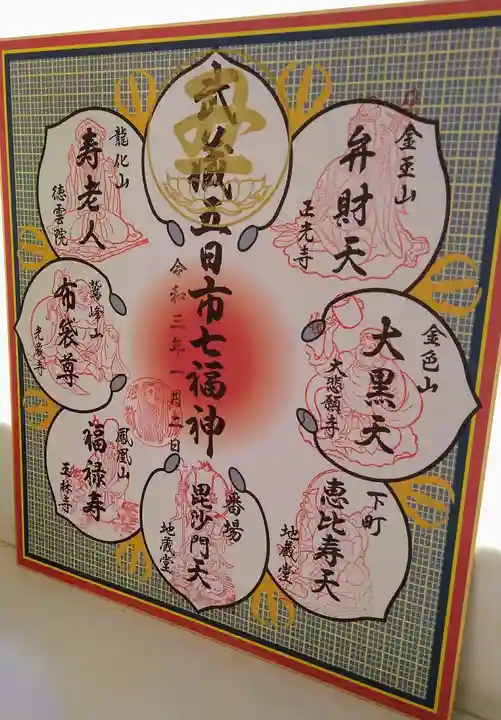 武蔵五日市七福神
令和三年一月二日
金玉山
弁財天
正光寺
金色山
大黒天
大悲願寺
下町
恵比寿天
地蔵堂
番場
毘沙門天
地蔵堂
鳳凰山
福禄寿
玉林寺
鷲峰山
布袋尊
光厳寺
龍化山
寿老人
徳雲院